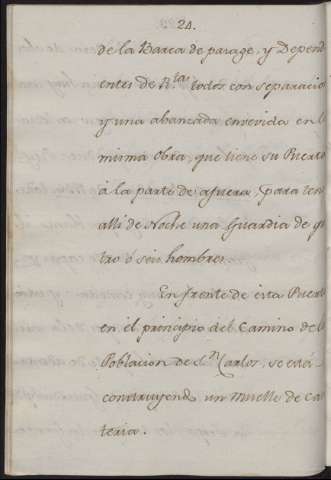 24.
de la Barca de parage, y Depend
entes de R.tas todos con separacio
y una abanzada envevida en l
misma Obra, que tiene su Puert
à la parte de afuera, para ten
alli de Noche una Guardia de q
tro ó seis hombres.
En frente de esta Puert
en el principio del Camino de l
Poblacion de S.n Carlos, se està
construyendo un Muelle de Can
teria.